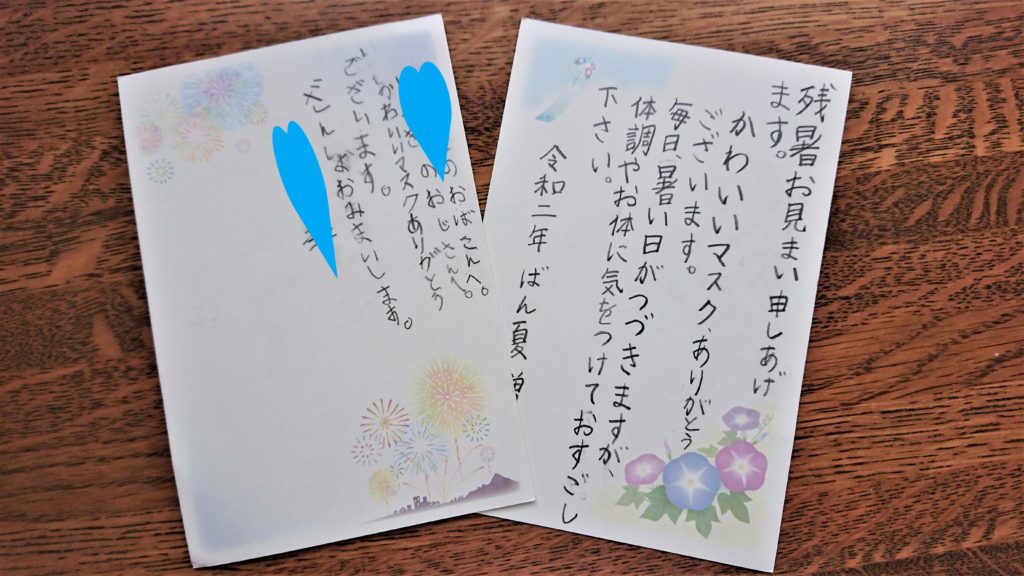 残暑お見まい申しあげ
ます。
かわいいマスク、ありがとう
ございます。
毎日、暑い日がつづきますが、
体調やお体に気をつけておすごし
下さい。
令和二年 ばん夏
のおばさんへ。
のおじさんへ。
かわいいマスクありがとう
ございます。
ざんしょおみまいします。